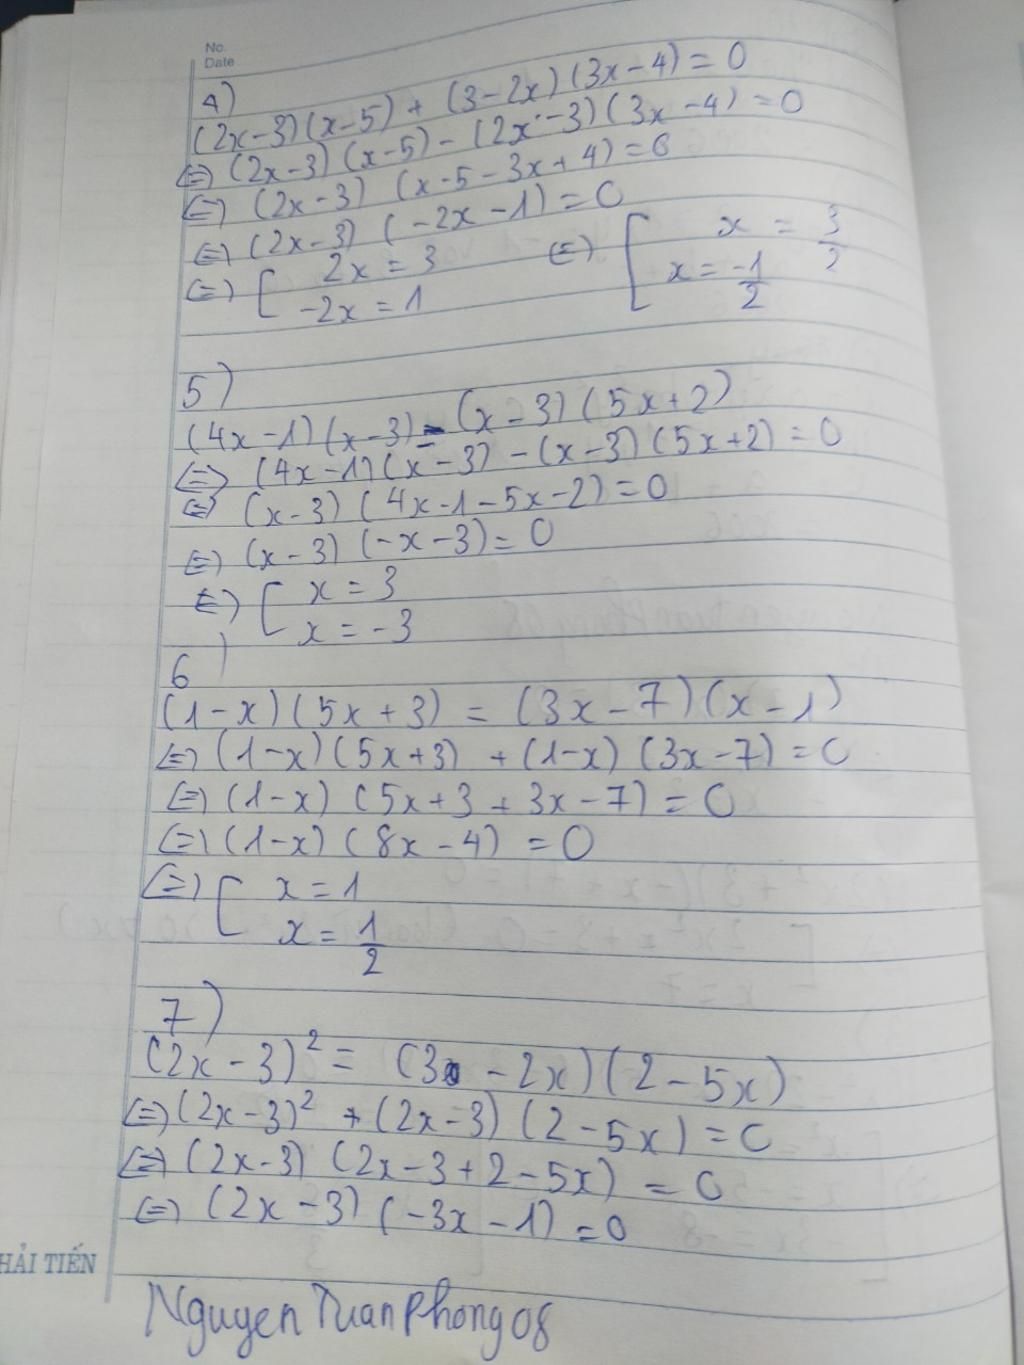 No.
Date
4)
(2x-3)(x-5) + (3-2x)(3x-4) = 0
(=) (2x-3)(x-5) - (2x-3)(3x-4) = 0
(=) (2x-3) (x-5-3x+4) = 0
(=) (2x-3) (-2x-1) = 0
(=) [ 2x = 3 (=) [ x = 3/2
-2x = 1 x = -1/2
5)
(4x-1)(x-3) = (x-3)(5x+2)
(=) (4x-1)(x-3) - (x-3)(5x+2) = 0
(=) (x-3) (4x-1-5x-2) = 0
(=) (x-3) (-x-3) = 0
(=) [ x = 3
x = -3
6)
(1-x)(5x+3) = (3x-7)(x-1)
(=) (1-x)(5x+3) + (1-x) (3x-7) = 0
(=) (1-x) (5x+3+3x-7) = 0
(=) (1-x) (8x-4) = 0
(=) [ x = 1
x = 1/2
7)
(2x-3)² = (3-2x)(2-5x)
(=) (2x-3)² + (2x-3) (2-5x) = 0
(=) (2x-3) (2x-3+2-5x) = 0
(=) (2x-3) (-3x-1) = 0
HẢI TIẾN
NguyenTuanPhong08